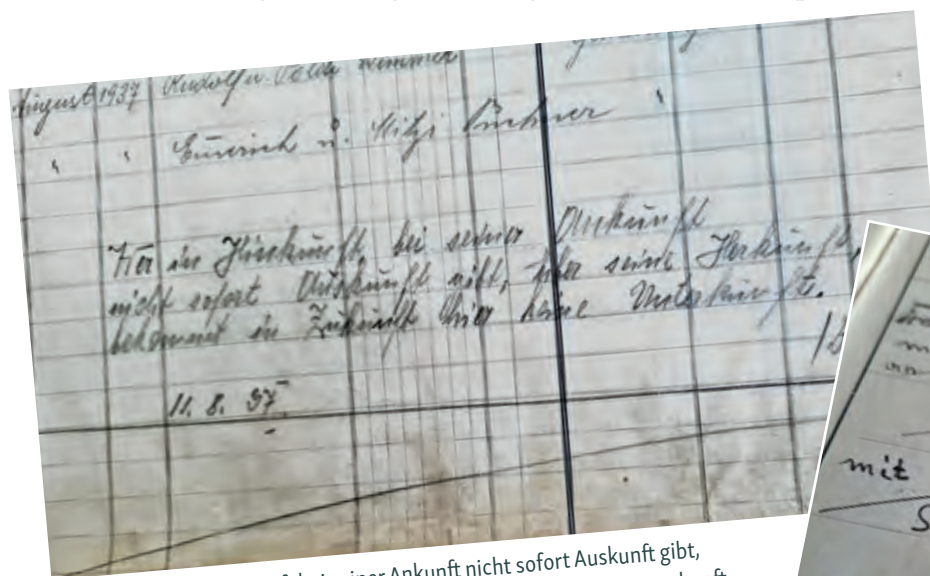 August 1937 Rudolf u. Kummer
" " Emerich u. Mitzi Puchner "
Wer in Hinkunft, bei seiner Ankunft
nicht sofort Auskunft gibt, über seine Herkunft,
bekommt in Zukunft hier keine Unterkunft.
11. 8. 37.
mit
S
einer Ankunft nicht sofort Auskunft gibt,